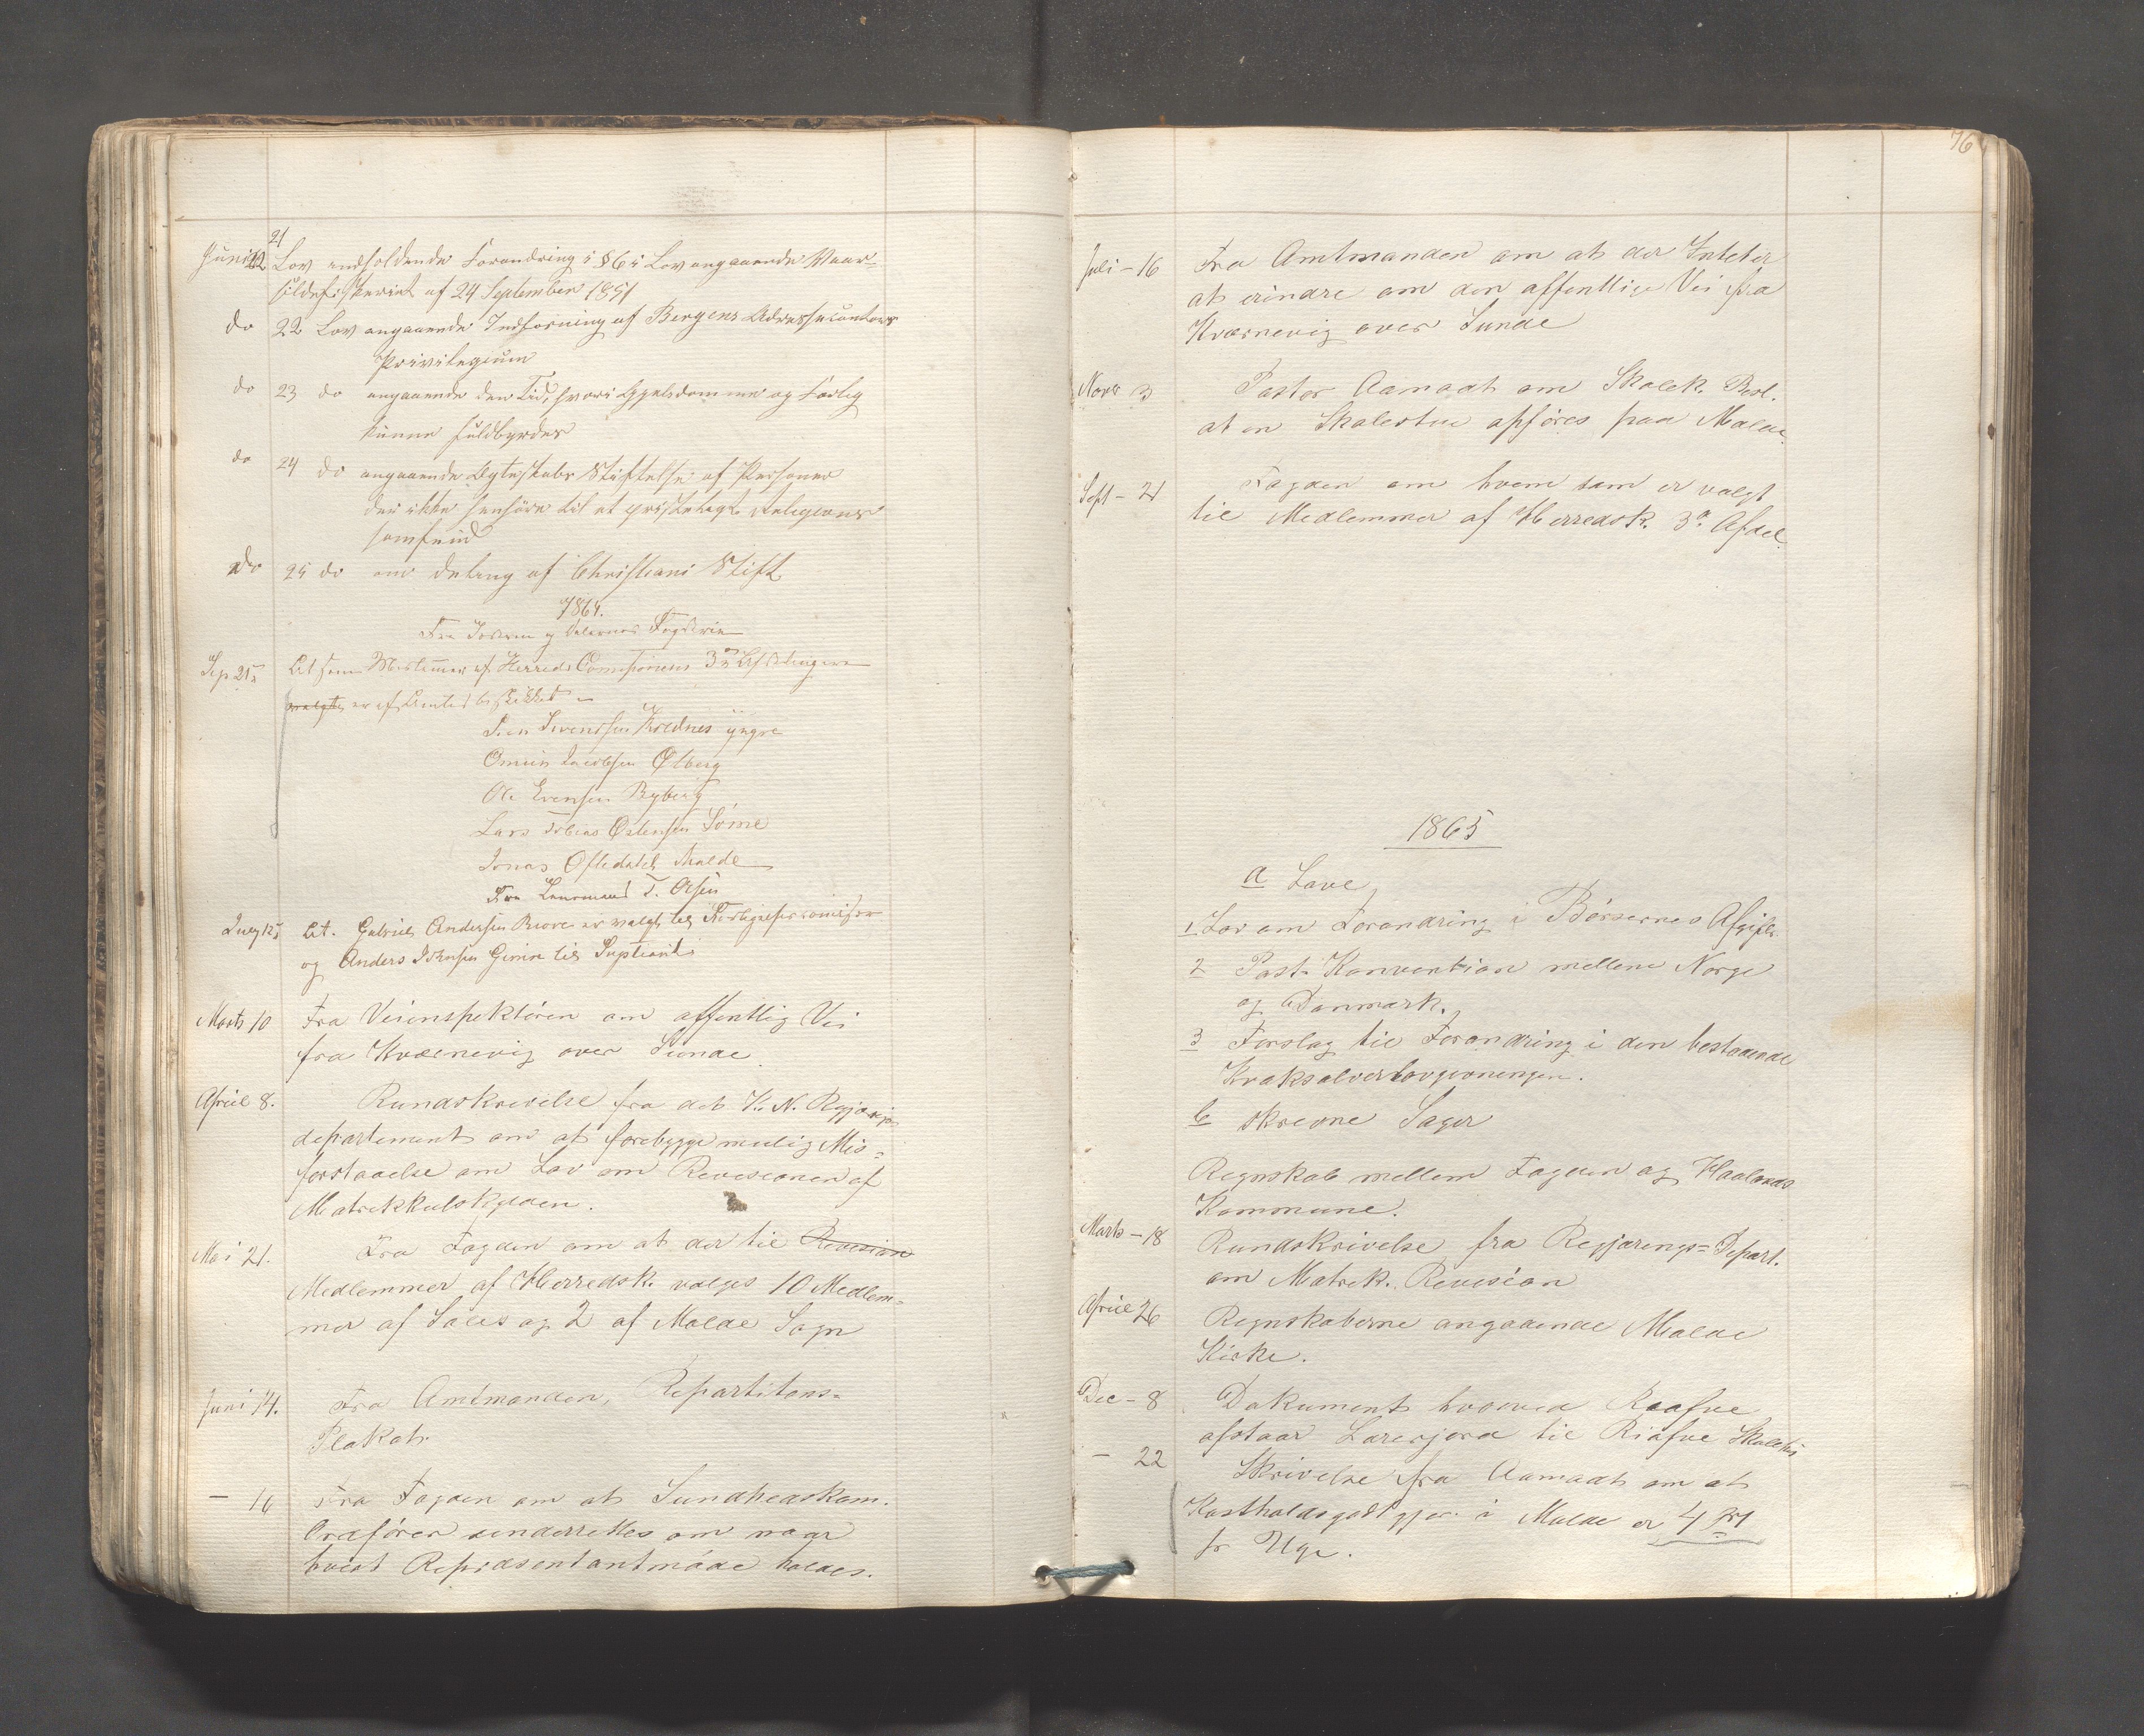 21
Juni 12 Lov indholdende Forandring i § 6 i Lov angaaende Vaar-
sildefiskeriet af 24 September 1851
do 22 Lov angaaende Indløsning af Bergens Adressecontoirs
Privilegium
do 23 do angaaende den Tid, hvori Gjeldsdomme og Forlig
kunne fuldbyrdes
do 24 do angaaende Ægteskabs Stiftelse af Personer
der ikke henhöre til et christeligt Religions
samfund
do 25 do om Deling af Christians Stift
1864.
Fra Jæderen og Dalernes Fogderie
Sep 21 At som Medlemmer af Herreds Comisionens 3die Afdeling
valgte er af Amtet beskikket
Svendsen yngre
Jacobsen Ölberg
Ole Evensen Ryberg
Lars Tobias Östensen Sömme
Jonas Ofledahl Malde
Fra Lensmand T. Olsen
At. Gabriel Andersen er valgt til Forligelsescomisær
og Anders Johnsen til Supleant
Marts 10 Fra Veiinspektören om offentlig Vei
fra Kværnevig over Sunde
April 8. Rundskrivelse fra det K. N. Regjerings
departement om at forebygge mulig Mis=
forstaaelse om Lov om Revisionen af
Matrikkulskylden.
Mai 21. Fra Fogden om at der til Revision
Medlemmer af Herredsk. valges 10 Medlem=
mer af Soles og 2 af Malde Sogn
Juni 14. Fra Amtmanden, Repartitons=
Plakat.
— 16 Fra Fogden om at Sundhedskom.
Ordförer underrettes om naar
hvert Repræsentantmöde holdes.
76
Juli – 16 Fra Amtmanden om at der Intet er
at erindre om den offentlige Vei fra
Kværnevig over Sunde
Novr 3 Pastor Aamodt om Skolek. Besl.
at en Skolestue opföres paa Malde.
Sept – 21 Fogden om hvem som er valgt
til Medlemmer af Herredsk. 3die Afdel.
1865
a Love
1 Lov om Forandring i Börsernes Afgifter
2 Post-Konvention mellem Norge
og Danmark.
3 Forslag til Forandring i den bestaaende
Kvaksalverlovgivningen.
b skrevne Sager
Regnskab mellem Fogden og Haalands
Kommune.
Marts – 18 Rundskrivelse fra Regjerings=Depart.
om Matrik. Revision
April 26 Regnskaberne angaaende Malde
Kirke.
Dec – 8 Dokument hvorved
afstaar Lærerjord til Skole
— 22 Skrivelse fra Aamodt om at
Kostholdsgodtgjör. i Malde er 4
pr Uge.